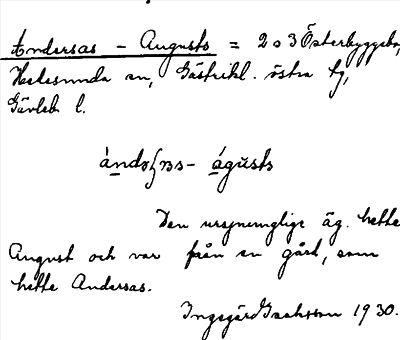 Andersas - Augusts = 2 o 3 Österbyggebo,
Hedesunda sn, Gästrikl. östra tg,
Gävleb l.
ándəʂas - ágŭsts
Den ursprunglige äg. hette
August och var från en gård, som
hette Andersas.
Ingegärd Isaksson 1930.